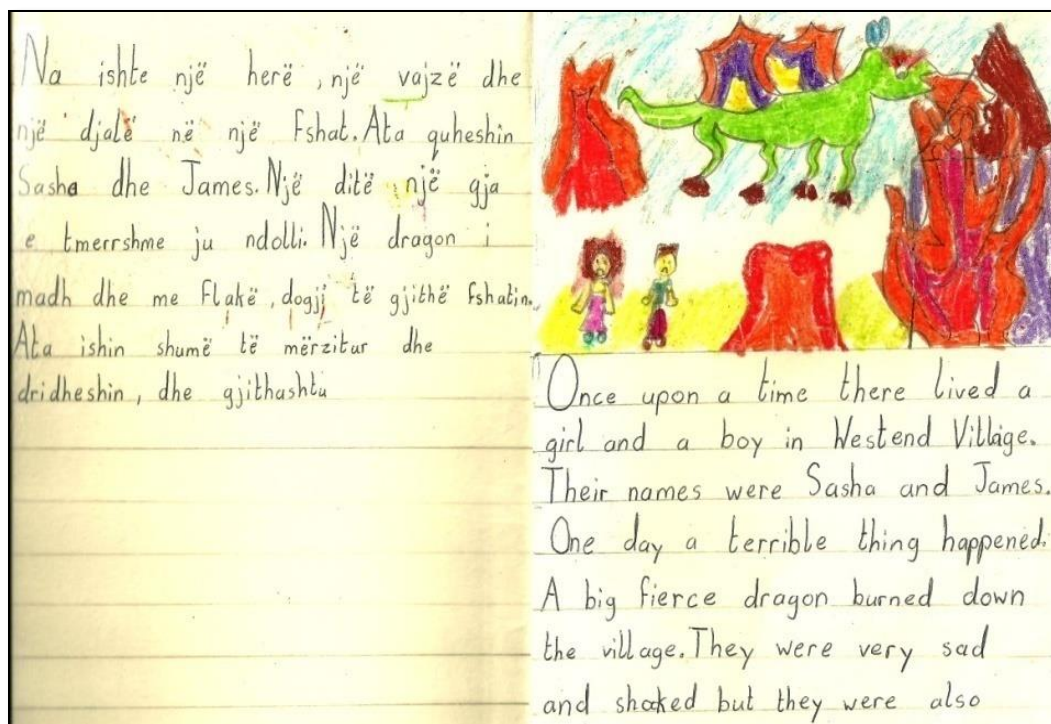 Na ishte një herë, një vajzë dhe
një djalë në një fshat. Ata quheshin
Sasha dhe James. Një ditë një gja
e tmerrshme ju ndolli. Një dragon i
madh dhe me flakë, dogji të gjithë fshatin.
Ata ishin shumë të mërzitur dhe
dridheshin, dhe gjithashtu
Once upon a time there lived a
girl and a boy in Westend Village.
Their names were Sasha and James.
One day a terrible thing happened.
A big fierce dragon burned down
the village. They were very sad
and shoked but they were also